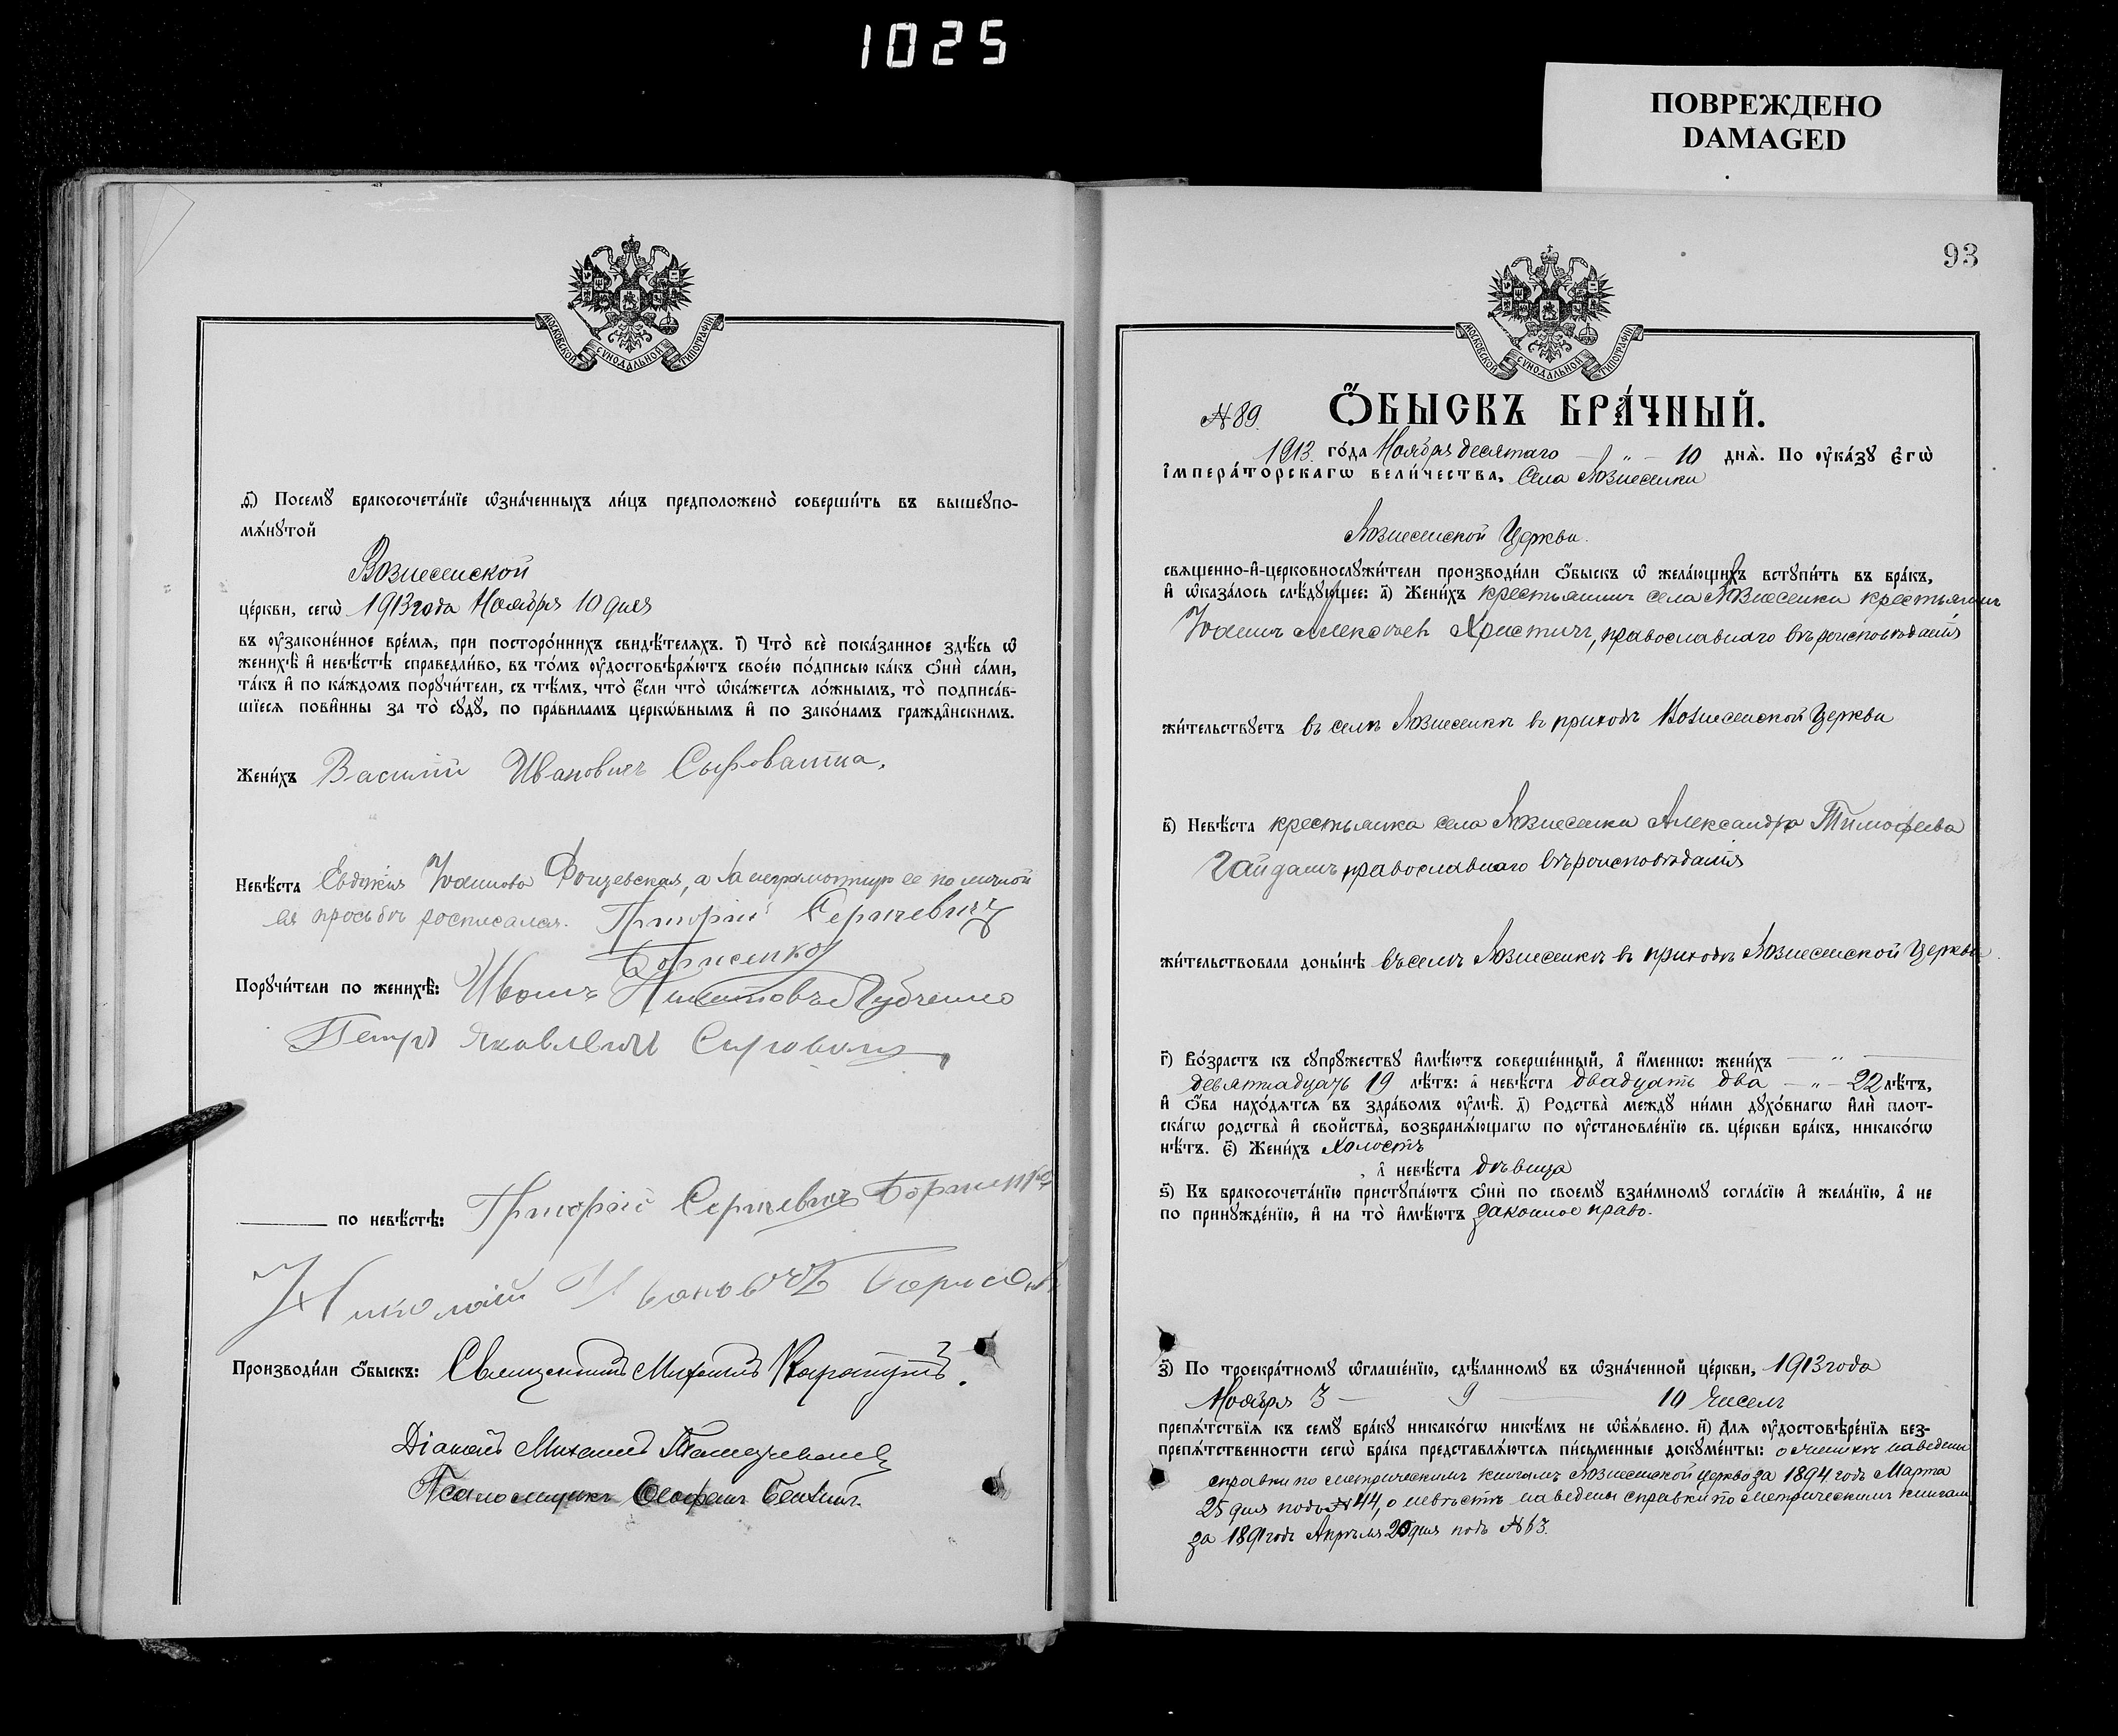 1025
ПОВРЕЖДЕНО
DAMAGED
МОСКОВСКОЙ СѴНОДАЛЬНОЙ ТИПОГРАФІИ
ѳ҃) Посемꙋ бракосочета́нїе ѡ҆зна́ченныхъ ли́цъ предположено̀ соверши́ть въ вышеꙋпо-
мѧ́нꙋтой
Вознесенской
це́ркви, сегѡ̀ 1913 года Ноября 10 дня
въ ᲂу҆законе́нное вре́мѧ, при посторо́ннихъ свидѣ́телѧхъ. і҃) Что̀ всѐ пока́занное здѣ́сь ѡ҆
женихѣ̀ и҆ невѣ́стѣ справедли́во, въ то́мъ ᲂу҆достовѣрѧ́ютъ свое́ю по́дписью ка́къ ѻ҆нѝ са́ми,
та́къ и҆ по ка́ждомъ порꙋчи́тели, съ тѣ́мъ, что̀ є҆́сли что̀ ѡ҆ка́жетсѧ ло́жнымъ, то̀ подписа́в-
шїесѧ пови́нны за то̀ сꙋдꙋ̀, по пра́виламъ церкѡ́внымъ и҆ по зако́намъ гражда̑нскимъ.
Жени́хъ Василий Ивановичъ Сыроватка.
Невѣ́ста Евдокія Іоаннова, а за неграмотную ее по личной
ея просьбѣ росписался. Григорій Сергѣевичъ
Борисенко
Порꙋчи́тели по женихѣ̀: Иванъ Губченко
Петръ Яковлевичъ
по невѣ́стѣ: Григорій Сергѣевичъ Борисенко
Николай Ивановичъ Борисенко
Производи́ли ѻ҆́быскъ: Священникъ Михаилъ
Діаконъ Михаилъ
Псаломщикъ Ѳеофанъ
93
МОСКОВСКОЙ СѴНОДАЛЬНОЙ ТИПОГРАФІИ
№ 89. Ѻ҆́БЫСКЪ БРА́ЧНЫЙ.
1913 го́да Ноября десятаго — " — 10 днѧ̀. По ᲂу҆ка́зꙋ є҆гѡ̀
і҆мпера́торскагѡ вели́чества, села Вознесенки
Вознесенской Церкви.
свѧщенно-и҆-церковнослꙋжи́тели производи́ли ѻ҆́быскъ ѡ҆ жела́ющихъ встꙋпи́ть въ бра́къ,
и҆ ѡ҆каза́лось слѣ́дꙋющее: а҃) Жени́хъ крестьянинъ села Вознесенки крестьянинъ
Іоаннъ Алексѣевъ Христичъ, православнаго вѣроисповѣданія
жи́тельствꙋетъ въ селѣ Вознесенкѣ въ приходѣ Вознесенской Церкви
в҃) Невѣ́ста крестьянка села Вознесенки Александра Тимофеева
Гайдашъ православнаго вѣроисповѣданія
жи́тельствовала доны́нѣ въ селѣ Вознесенкѣ въ приходѣ Вознесенской Церкви
г҃) Во́зрастъ къ сꙋпрꙋ́жествꙋ и҆мѣ́ютъ соверше́нный, а҆ и҆́меннѡ: жени́хъ — " —
девятнадцать 19 лѣ́тъ: а҆ невѣ́ста двадцать два — " — 22 лѣ́тъ,
и҆ ѻ҆́ба нахо́дѧтсѧ въ здра́вомъ ᲂу҆мѣ̀. д҃) Родства̀ междꙋ̀ ни́ми дꙋхо́внагѡ и҆лѝ плот-
ска́гѡ родства̀ и҆ свойства̀, возбранѧ́ющагѡ по ᲂу҆становле́нїю св. це́ркви бра́къ, никако́гѡ
нѣ́тъ. є҃) Жени́хъ холостъ
, а҆ невѣ́ста дѣвица
ѕ҃) Къ бракосочета́нїю пристꙋпа́ютъ ѻ҆нѝ по своемꙋ̀ взаи́мномꙋ согла́сїю и҆ жела́нїю, а҆ не
по принꙋжде́нїю, и҆ на то̀ и҆мѣ́ютъ законное право.
з҃) По троекра́тномꙋ ѡ҆глаше́нїю, сдѣ́ланномꙋ въ ѡ҆зна́ченной це́ркви, 1913 года
Ноября 3 — 9 — 10 чиселъ
препѧ́тствїѧ къ семꙋ̀ бра́кꙋ никако́гѡ никѣ́мъ не ѡ҆б̾ѧ́влено. и҃) Длѧ ᲂу҆достовѣре́нїѧ без-
препѧ́тственности сегѡ̀ бра́ка представлѧ́ютсѧ пи́сьменные докꙋме́нты: о женихѣ наведены
справки по метрическимъ книгамъ Вознесенской церкви за 1894 годъ Марта
25 дня подъ № 44, о невѣстѣ наведены справки по метрическимъ книгамъ
за 1891 годъ Апрѣля 20 дня подъ № 63.